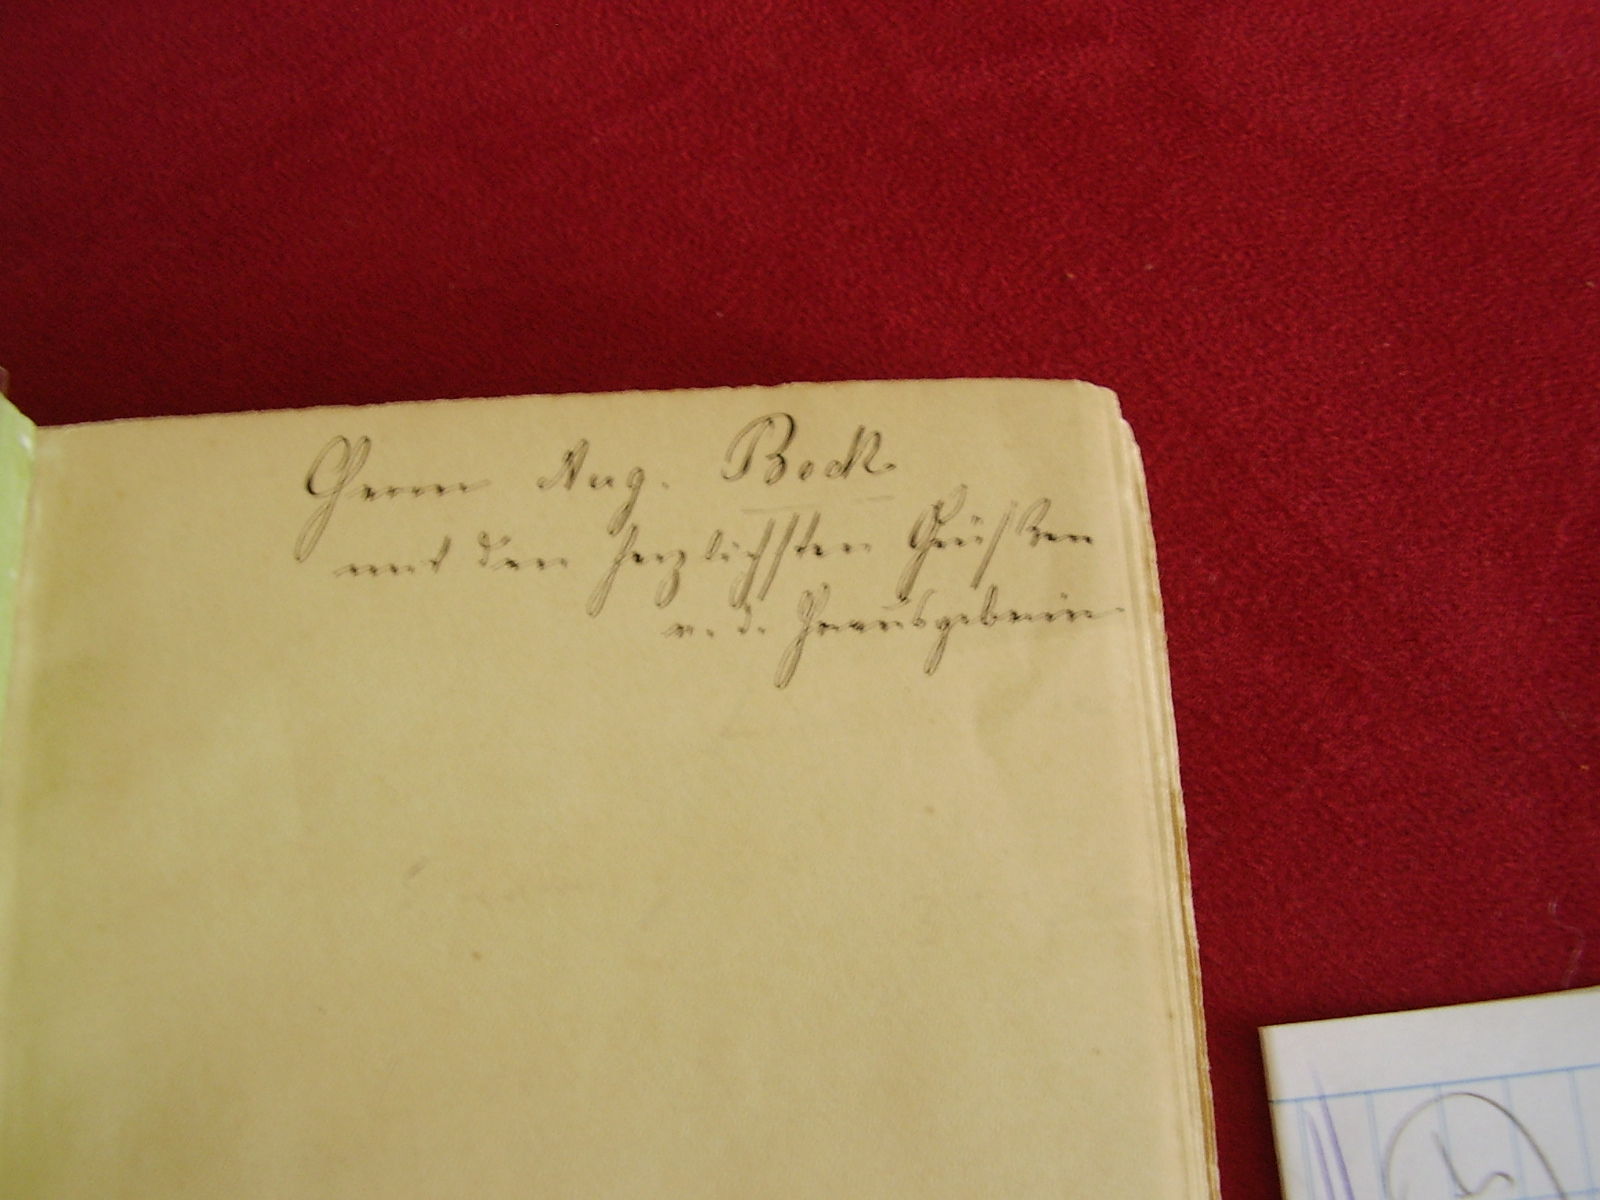 Herrn Aug. Bock
mit den herzlichsten Grüßen
v. d. Herausgeberin